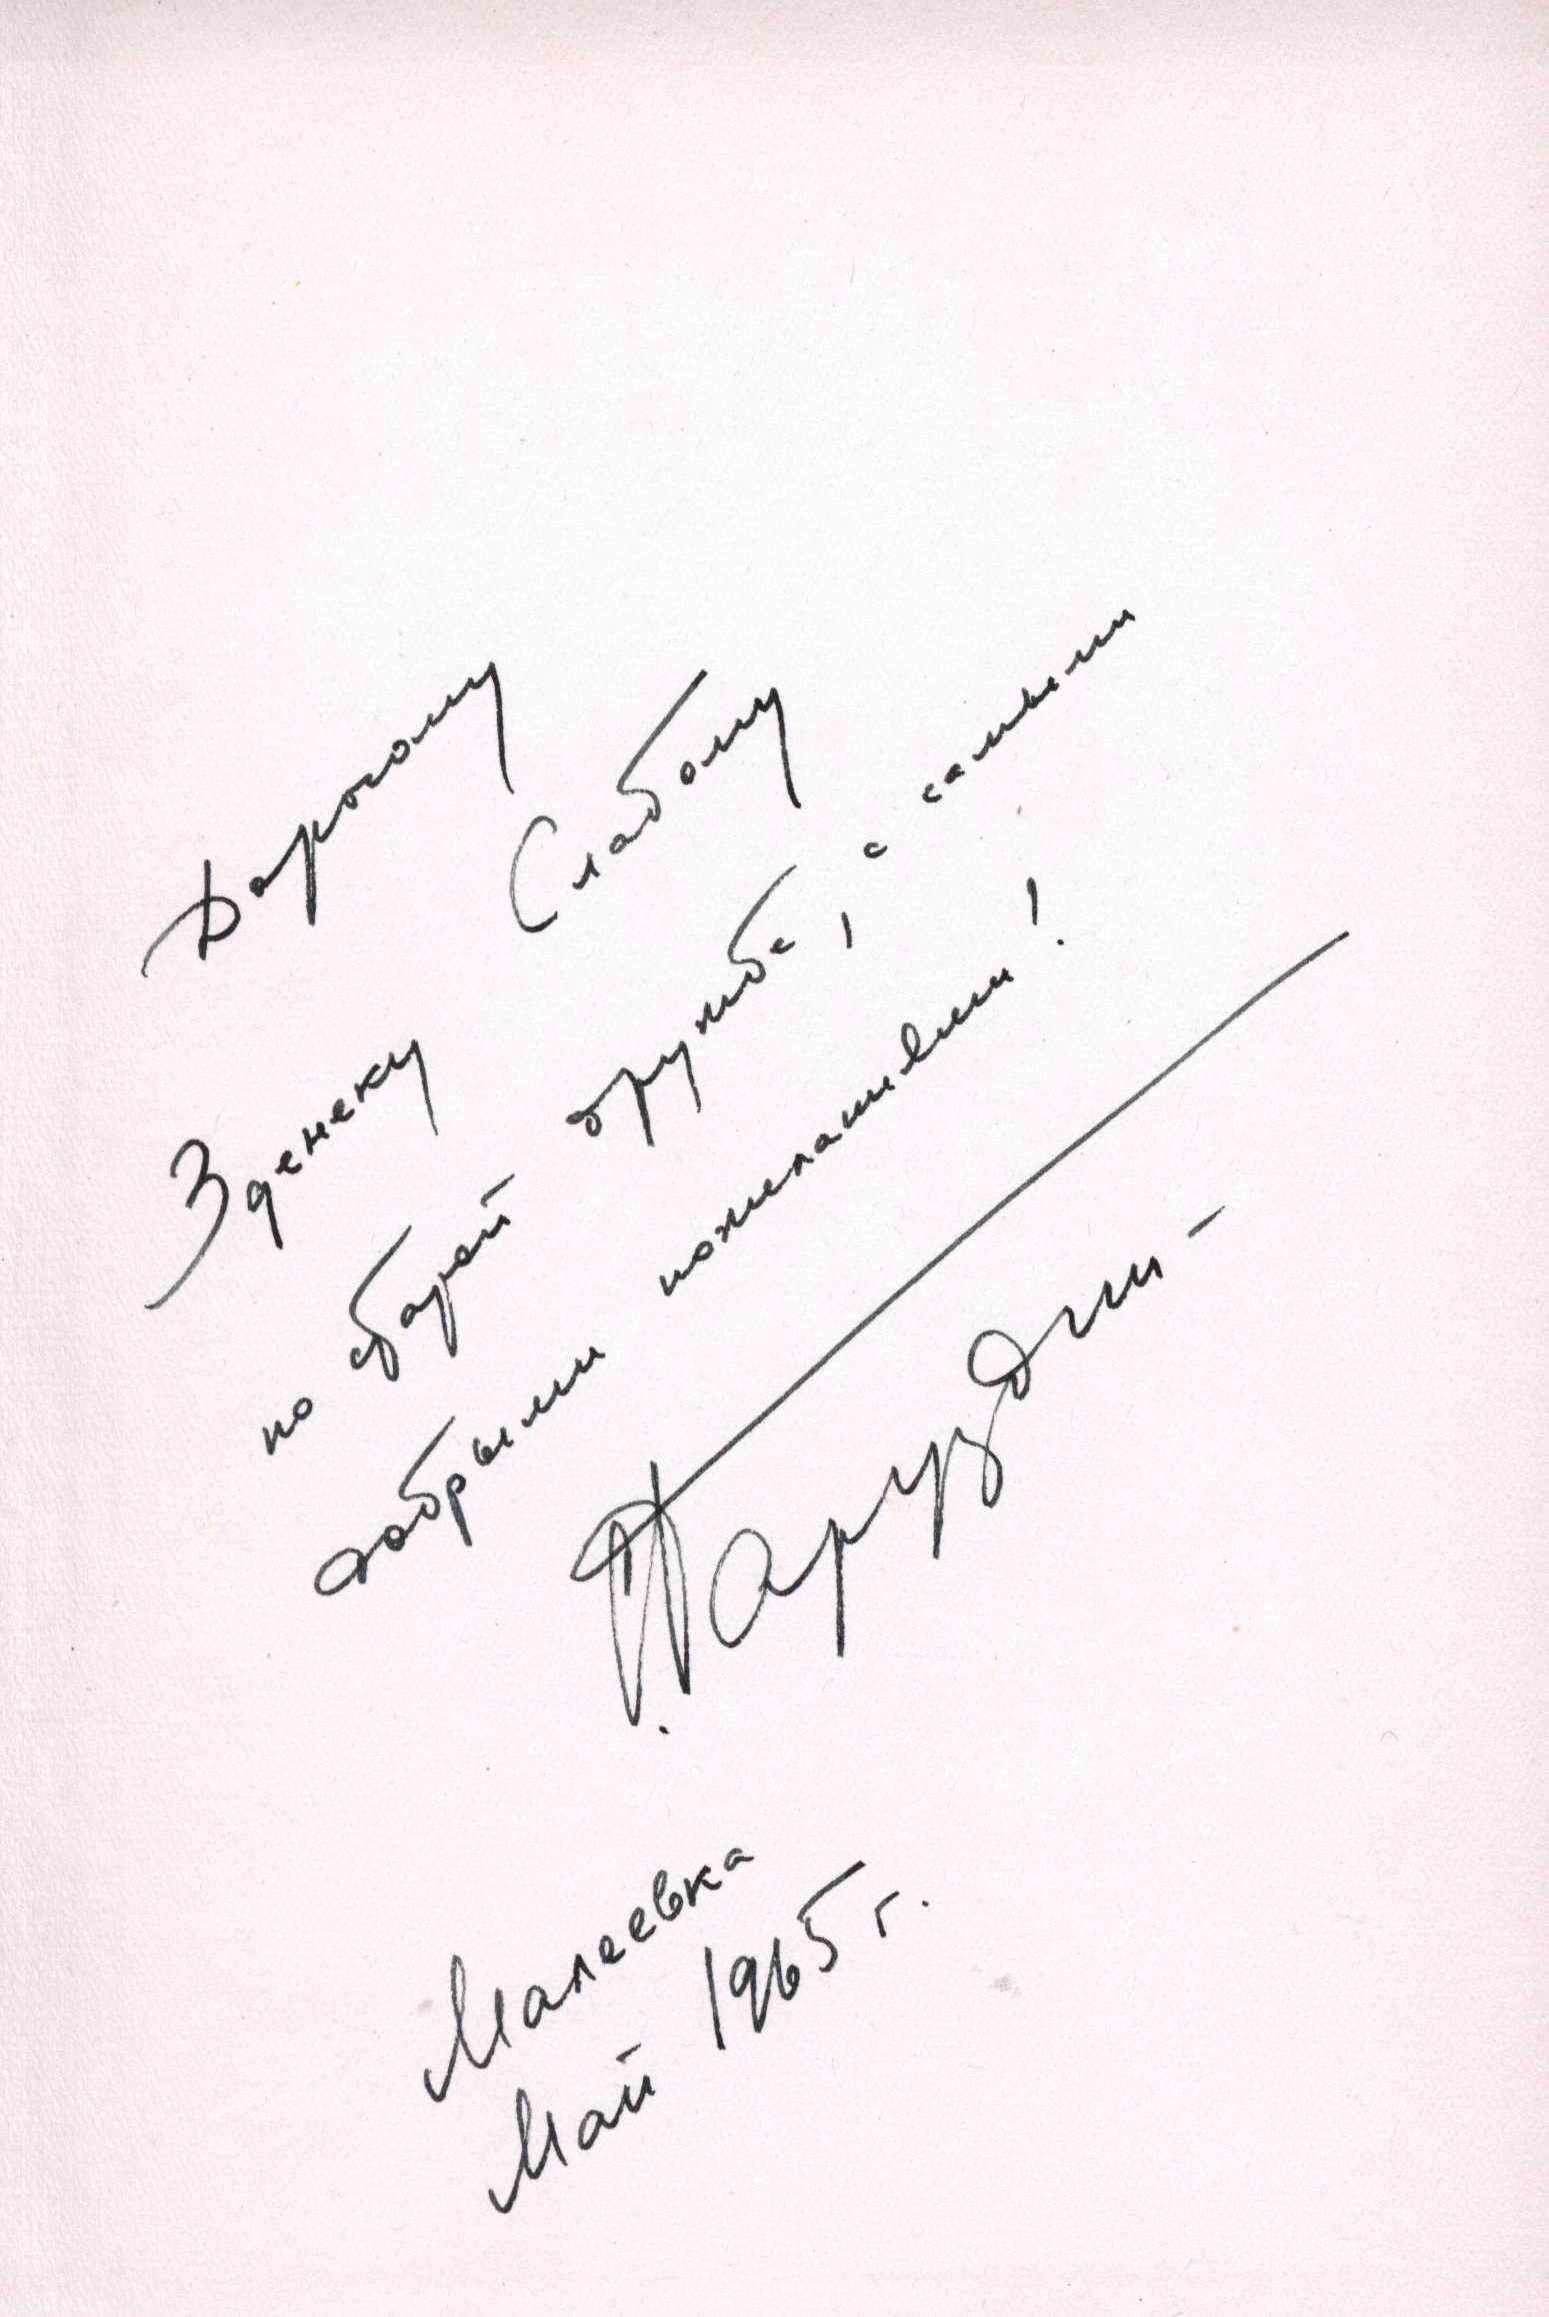 Дорогому
Зденеку Слабому
по старой дружбе, с самыми
добрыми пожеланиями!
Баруздин
Малеевка
Май 1965 г.